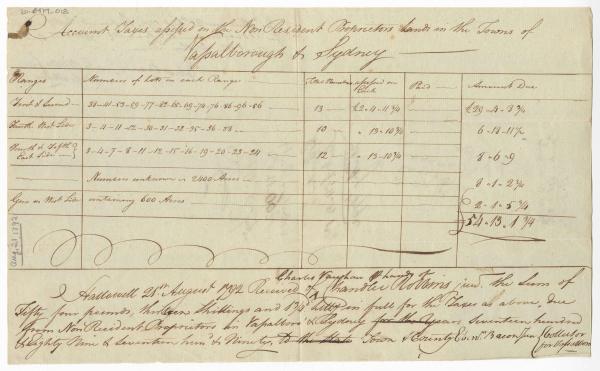 Account Taxes assessed on the Non Resident Proprietors Lands in the Towns of
Vassalborough & Sydney
Ranges Numbers of lots in each Range assessed on Each Paid Amount Due
First & Second 13 £2-4-11 3/4 £29-4-3 3/4
Fourth West Side 3-4-11-12-30-31-32-35-36-38 10 13-10 3/4 6-18-11 1/2
Fourth & Fifth East Side 3-4-7-8-11-12-15-16-19-20-23-24 12 13-10 3/4 8-6-9
Numbers unknown 2400 Acres 8-1-2 3/4
Gore on West Side containing 600 Acres 2-1-5 3/4
54-13-1 3/4
Charles Vaughan by hand of
Hallowell 21st August 1792 Received of Chandler Robbins jun. the Sum of
Fifty four pounds, thirteen Shillings and in full for the Taxes as above, due
from Non Resident Proprietors in Vassalboro & Sydney for the Years seventeen hundred
& Eighty Nine & Seventeen hund & Ninety, to the State Town & County Collector
for Vassalboro
Aug. 21 1792